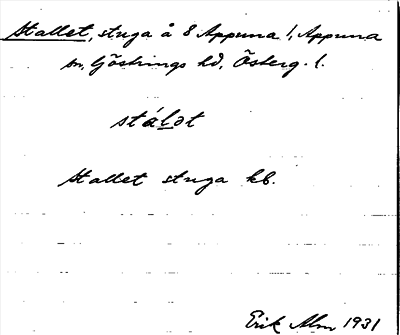 Stallet, stuga å 8 Appuna l, Appuna
sn, Göstrings hd, Österg. l.
stálət
Stallet stuga kb.
Erik Alm 1931